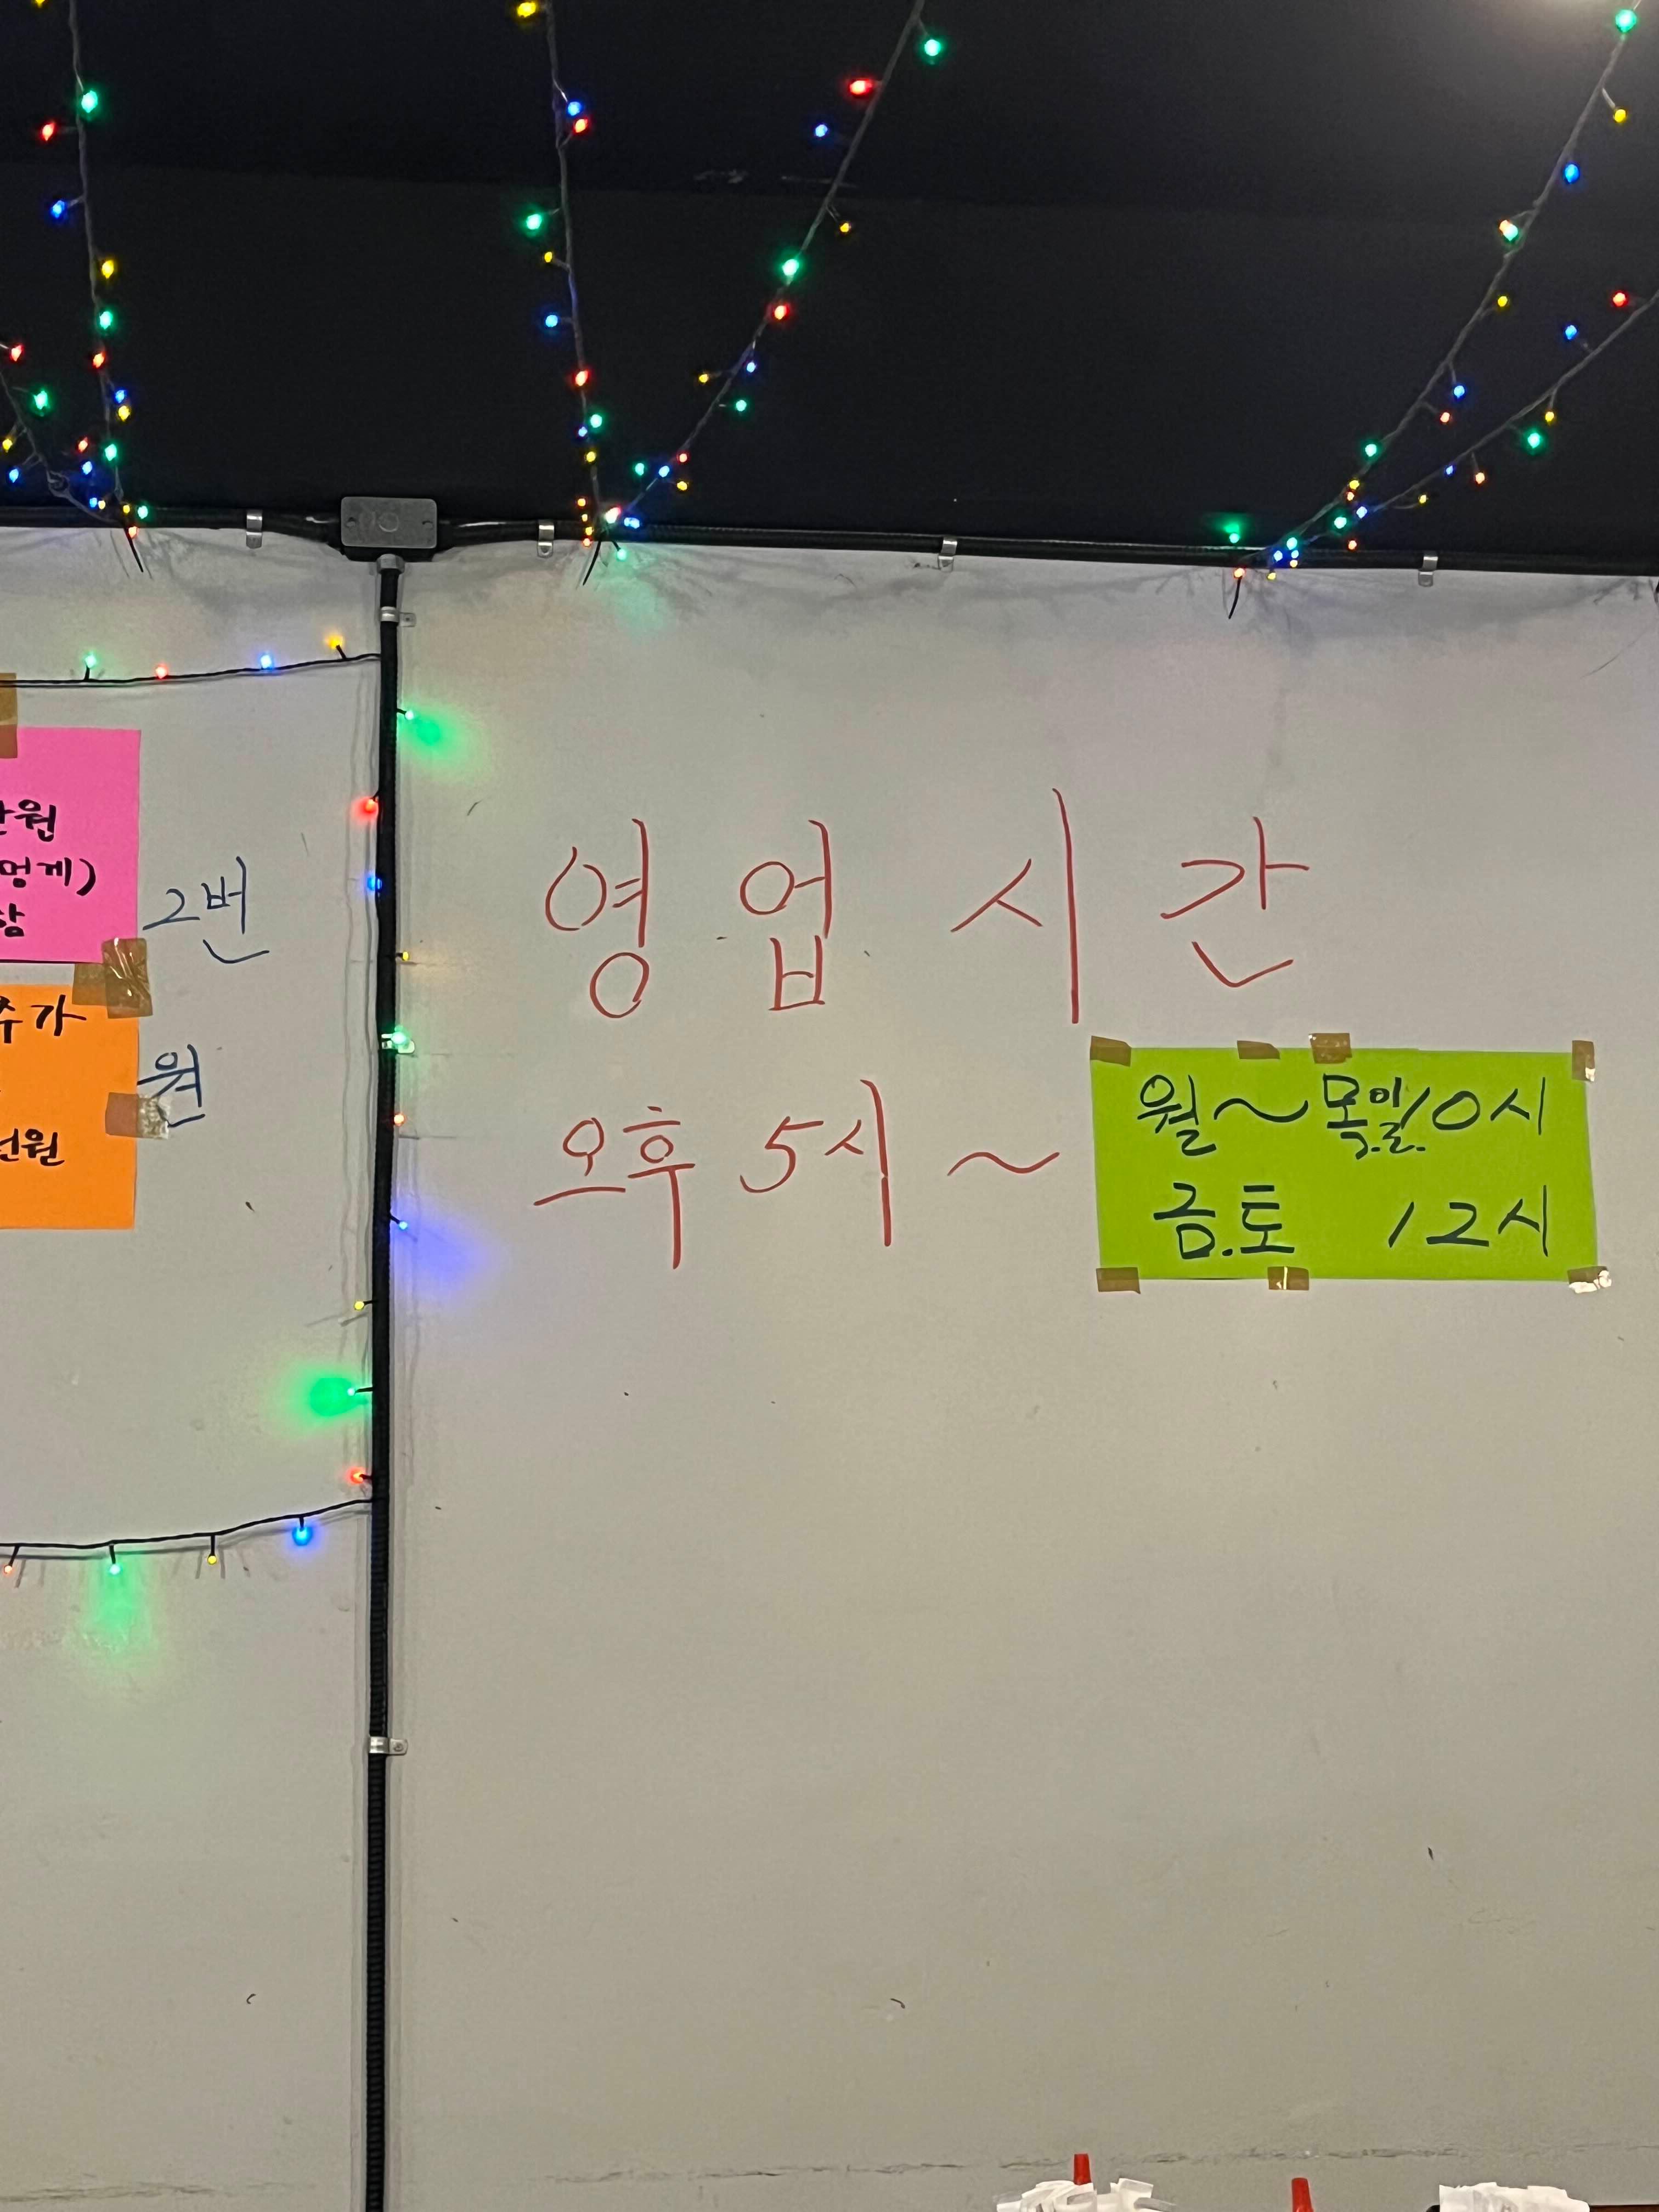 영업시간
오후 5시 ~
월~목.일.10시
금.토 12시
2번
원
멍게)
추가